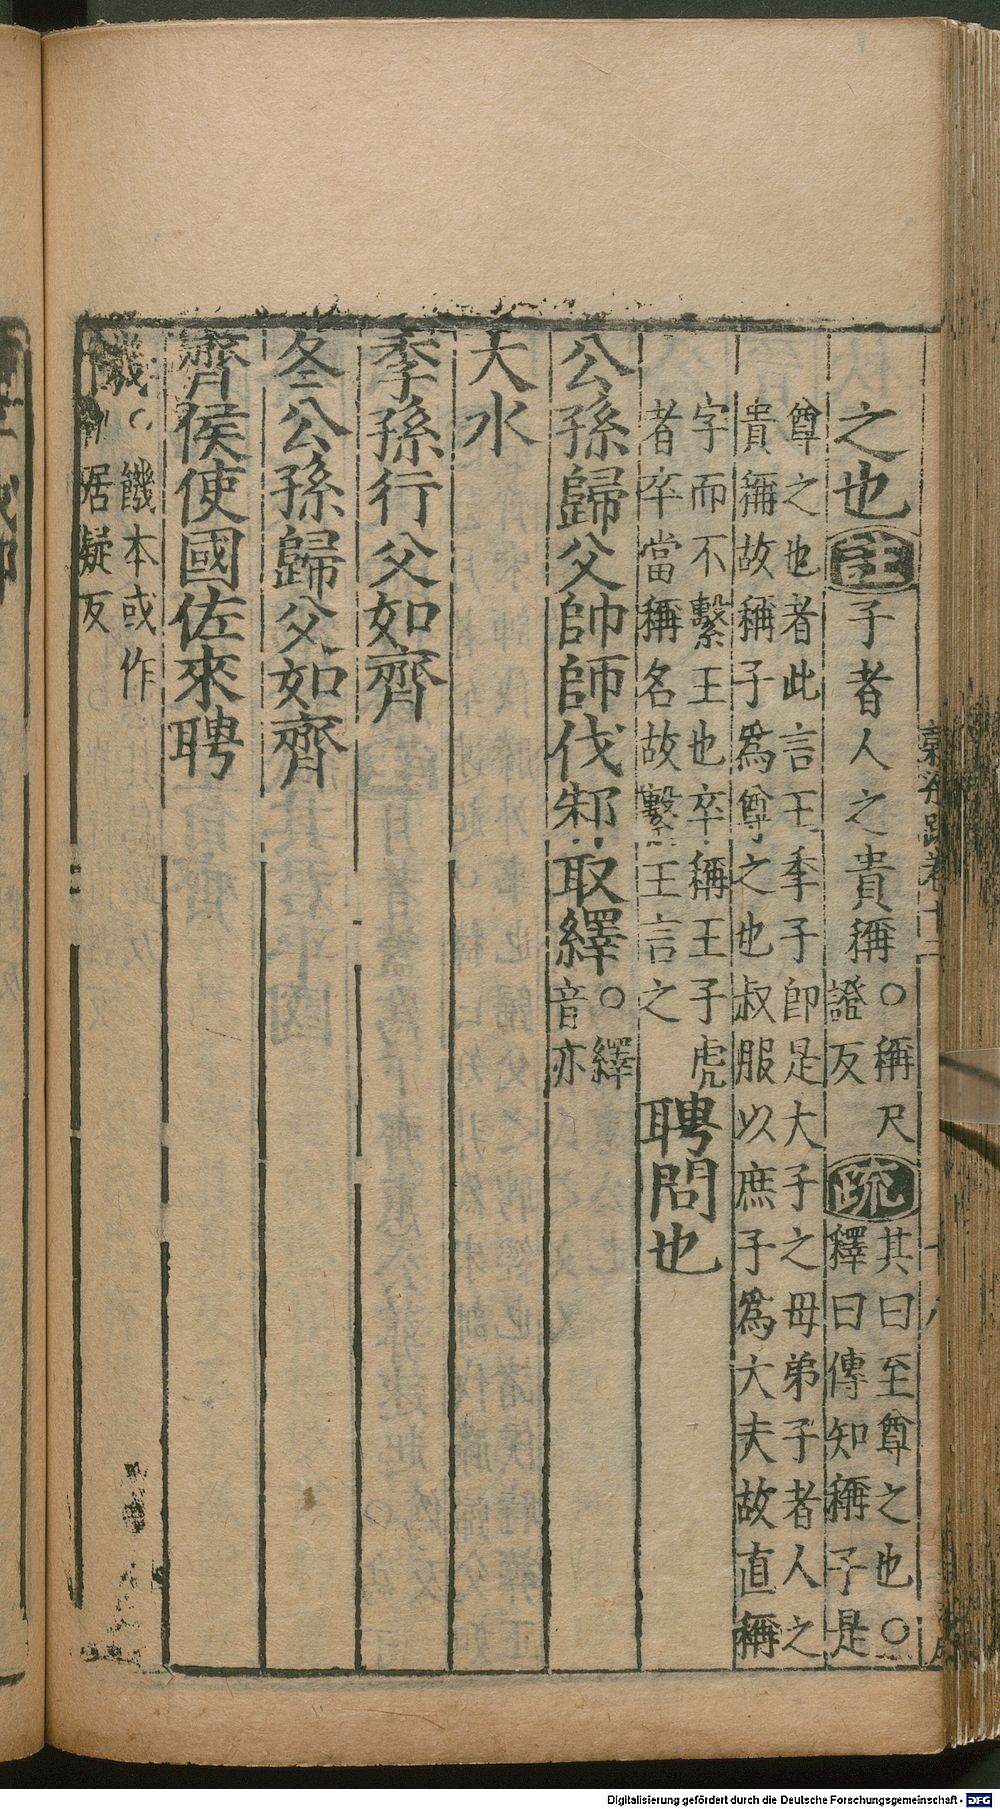 之也註子者人之貴稱○稱尺證反疏其曰至尊之也○釋曰傳知稱子是
尊之也者此言王季子即是大子之母弟子者人之
貴稱故稱子爲尊之也叔服以庶子爲大夫故直稱
字而不繫王也卒稱王子虎
者卒當稱名故繫王言之聘問也
公孫歸父帥師伐邾取繹○繹音亦
大水
季孫行父如齊
冬公孫歸父如齊
齊侯使國佐來聘
饑○饑本或作
居疑反
Digitalisierung gefördert durch die Deutsche Forschungsgemeinschaft - DFG